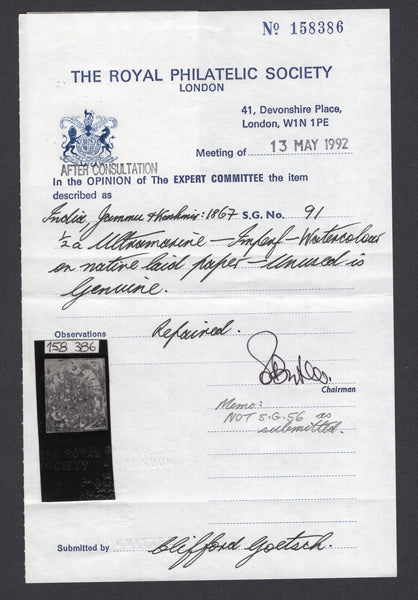 No 158386
THE ROYAL PHILATELIC SOCIETY
LONDON
41, Devonshire Place,
London, W1N 1PE
Meeting of 13 MAY 1992
AFTER CONSULTATION
In the OPINION of The EXPERT COMMITTEE the item
described as
India, Jammu & Kashmir: 1867 S.G. No. 91
½a Ultramarine - Imperf - Watercolour
on native laid paper - Unused is
Genuine.
Observations Repaired.
158 386
Chairman
Memo:
NOT S.G. 56 as
submitted.
THE ROYAL
SOCIETY
LONDON
Submitted by Clifford Goetsch.